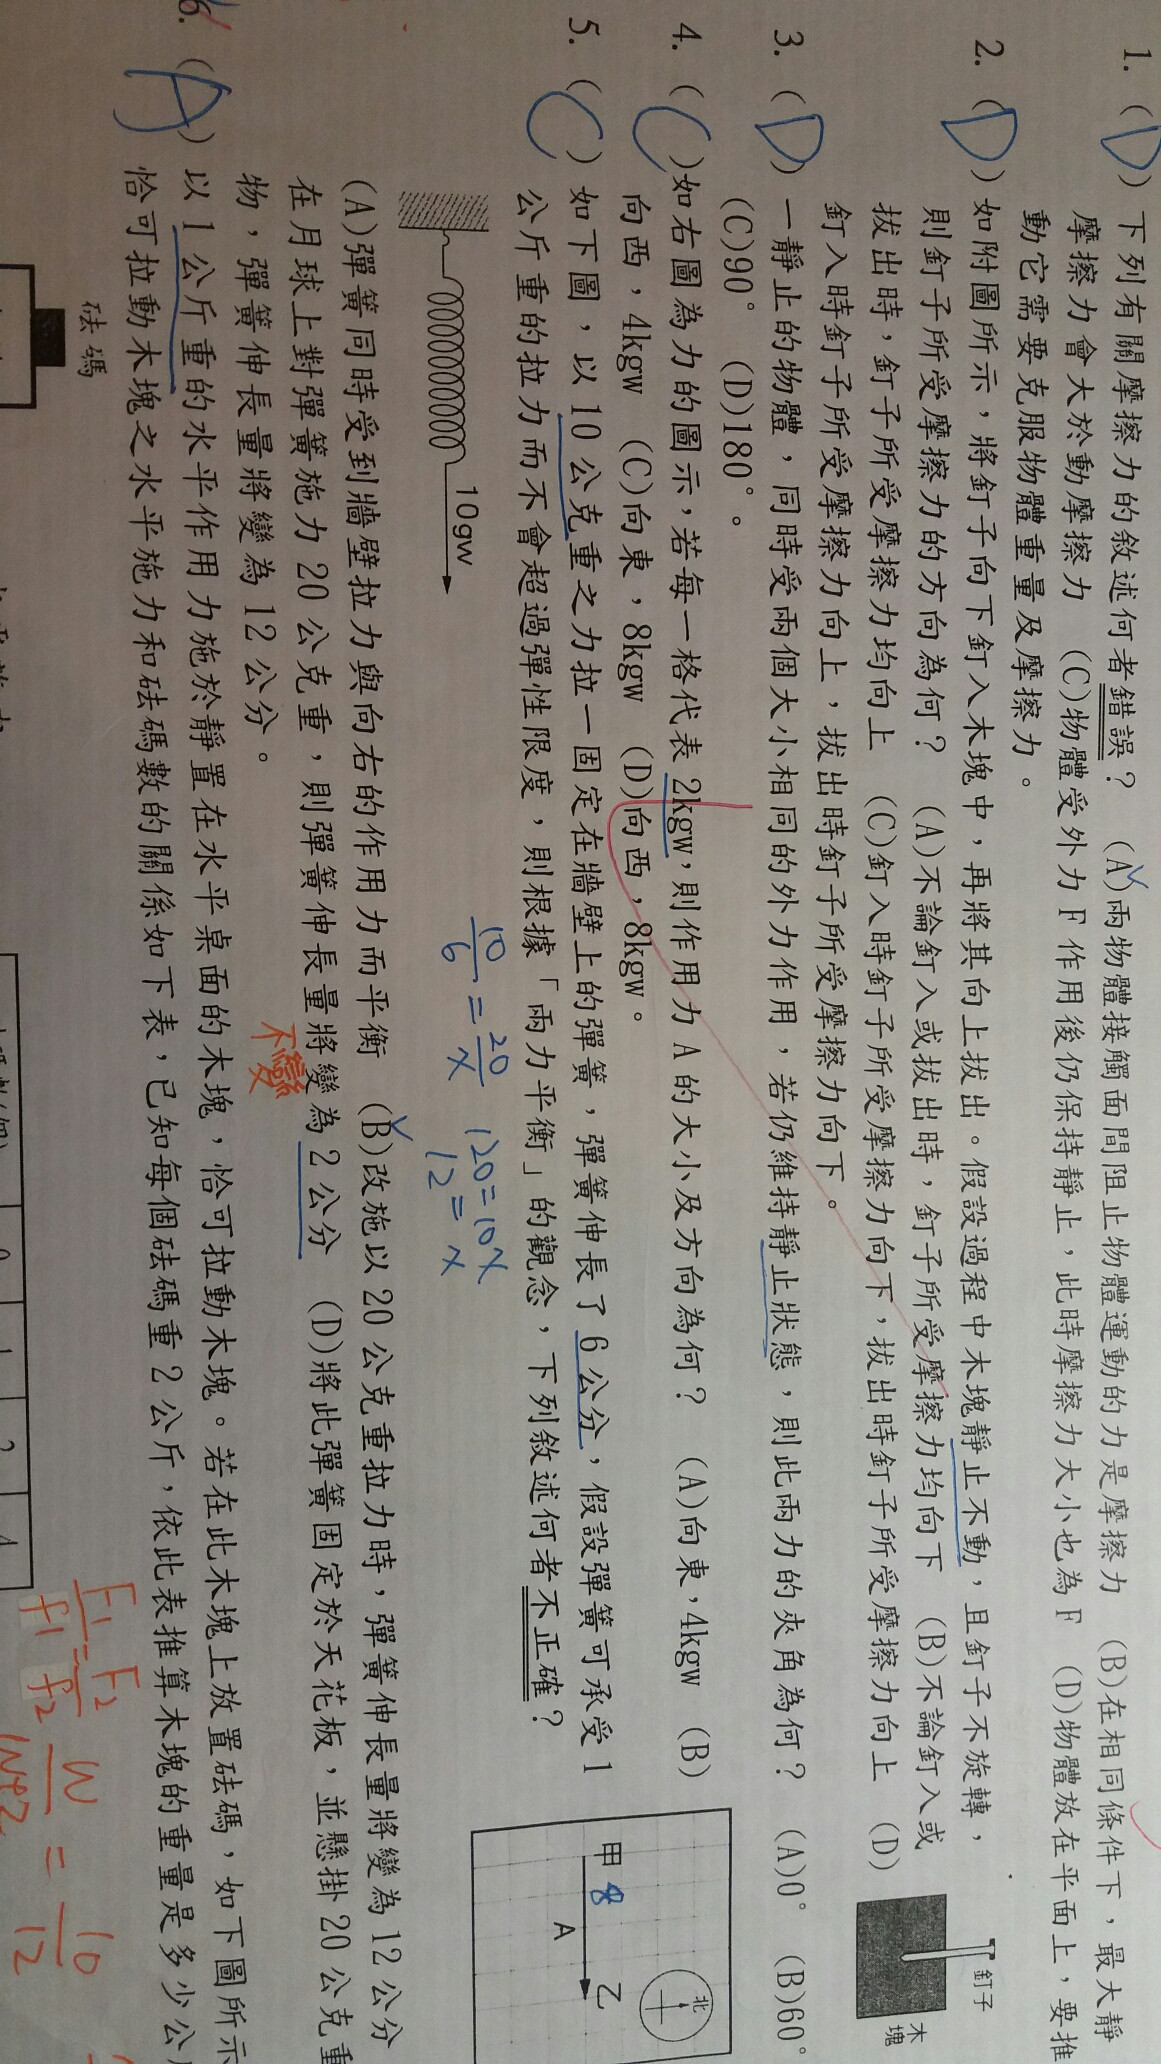 1. (D) 下列有關摩擦力的敘述何者錯誤？ (A)兩物體接觸面間阻止物體運動的力是摩擦力 (B)在相同條件下，最大靜
摩擦力會大於動摩擦力 (C)物體受外力F作用後仍保持靜止，此時摩擦力大小也為F (D)物體放在平面上，要推
動它需要克服物體重量及摩擦力。
2. (D) 如附圖所示，將釘子向下釘入木塊中，再將其向上拔出。假設過程中木塊靜止不動，且釘子不旋轉，
則釘子所受摩擦力的方向為何？ (A)不論釘入或拔出時，釘子所受摩擦力均向下 (B)不論釘入或
拔出時，釘子所受摩擦力均向上 (C)釘入時釘子所受摩擦力向下，拔出時釘子所受摩擦力向上 (D)
釘入時釘子所受摩擦力向上，拔出時釘子所受摩擦力向下。
釘子
木塊
3. (D) 一靜止的物體，同時受兩個大小相同的外力作用，若仍維持靜止狀態，則此兩力的夾角為何？ (A)0° (B)60°
(C)90° (D)180°。
4. (C) 如右圖為力的圖示，若每一格代表2kgw，則作用力A的大小及方向為何？ (A)向東，4kgw (B)
向西，4kgw (C)向東，8kgw (D)向西，8kgw。
北
甲 8 乙
A
5. (C) 如下圖，以10公克重之力拉一固定在牆壁上的彈簧，彈簧伸長了6公分，假設彈簧可承受1
公斤重的拉力而不會超過彈性限度，則根據「兩力平衡」的觀念，下列敘述何者不正確？
10gw
10/6 = 20/x 120=10x
12=x
(A)彈簧同時受到牆壁拉力與向右的作用力而平衡 (B)改施以20公克重拉力時，彈簧伸長量將變為12公分
在月球上對彈簧施力20公克重，則彈簧伸長量將變為2公分 (D)將此彈簧固定於天花板，並懸掛20公克重
不變
物，彈簧伸長量將變為12公分。
6. (A) 以1公斤重的水平作用力施於靜置在水平桌面的木塊，恰可拉動木塊。若在此木塊上放置砝碼，如下圖所示
恰可拉動木塊之水平施力和砝碼數的關係如下表，已知每個砝碼重2公斤，依此表推算木塊的重量是多少公
砝碼
F1/f1 = F2/f2 W/W+2 = 10/12